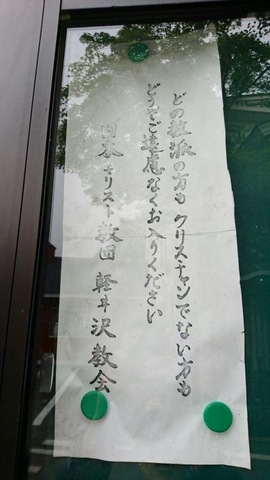 どの教派の方も クリスチャンでない方も
どうぞご遠慮なくお入りください
日本キリスト教団 軽井沢教会